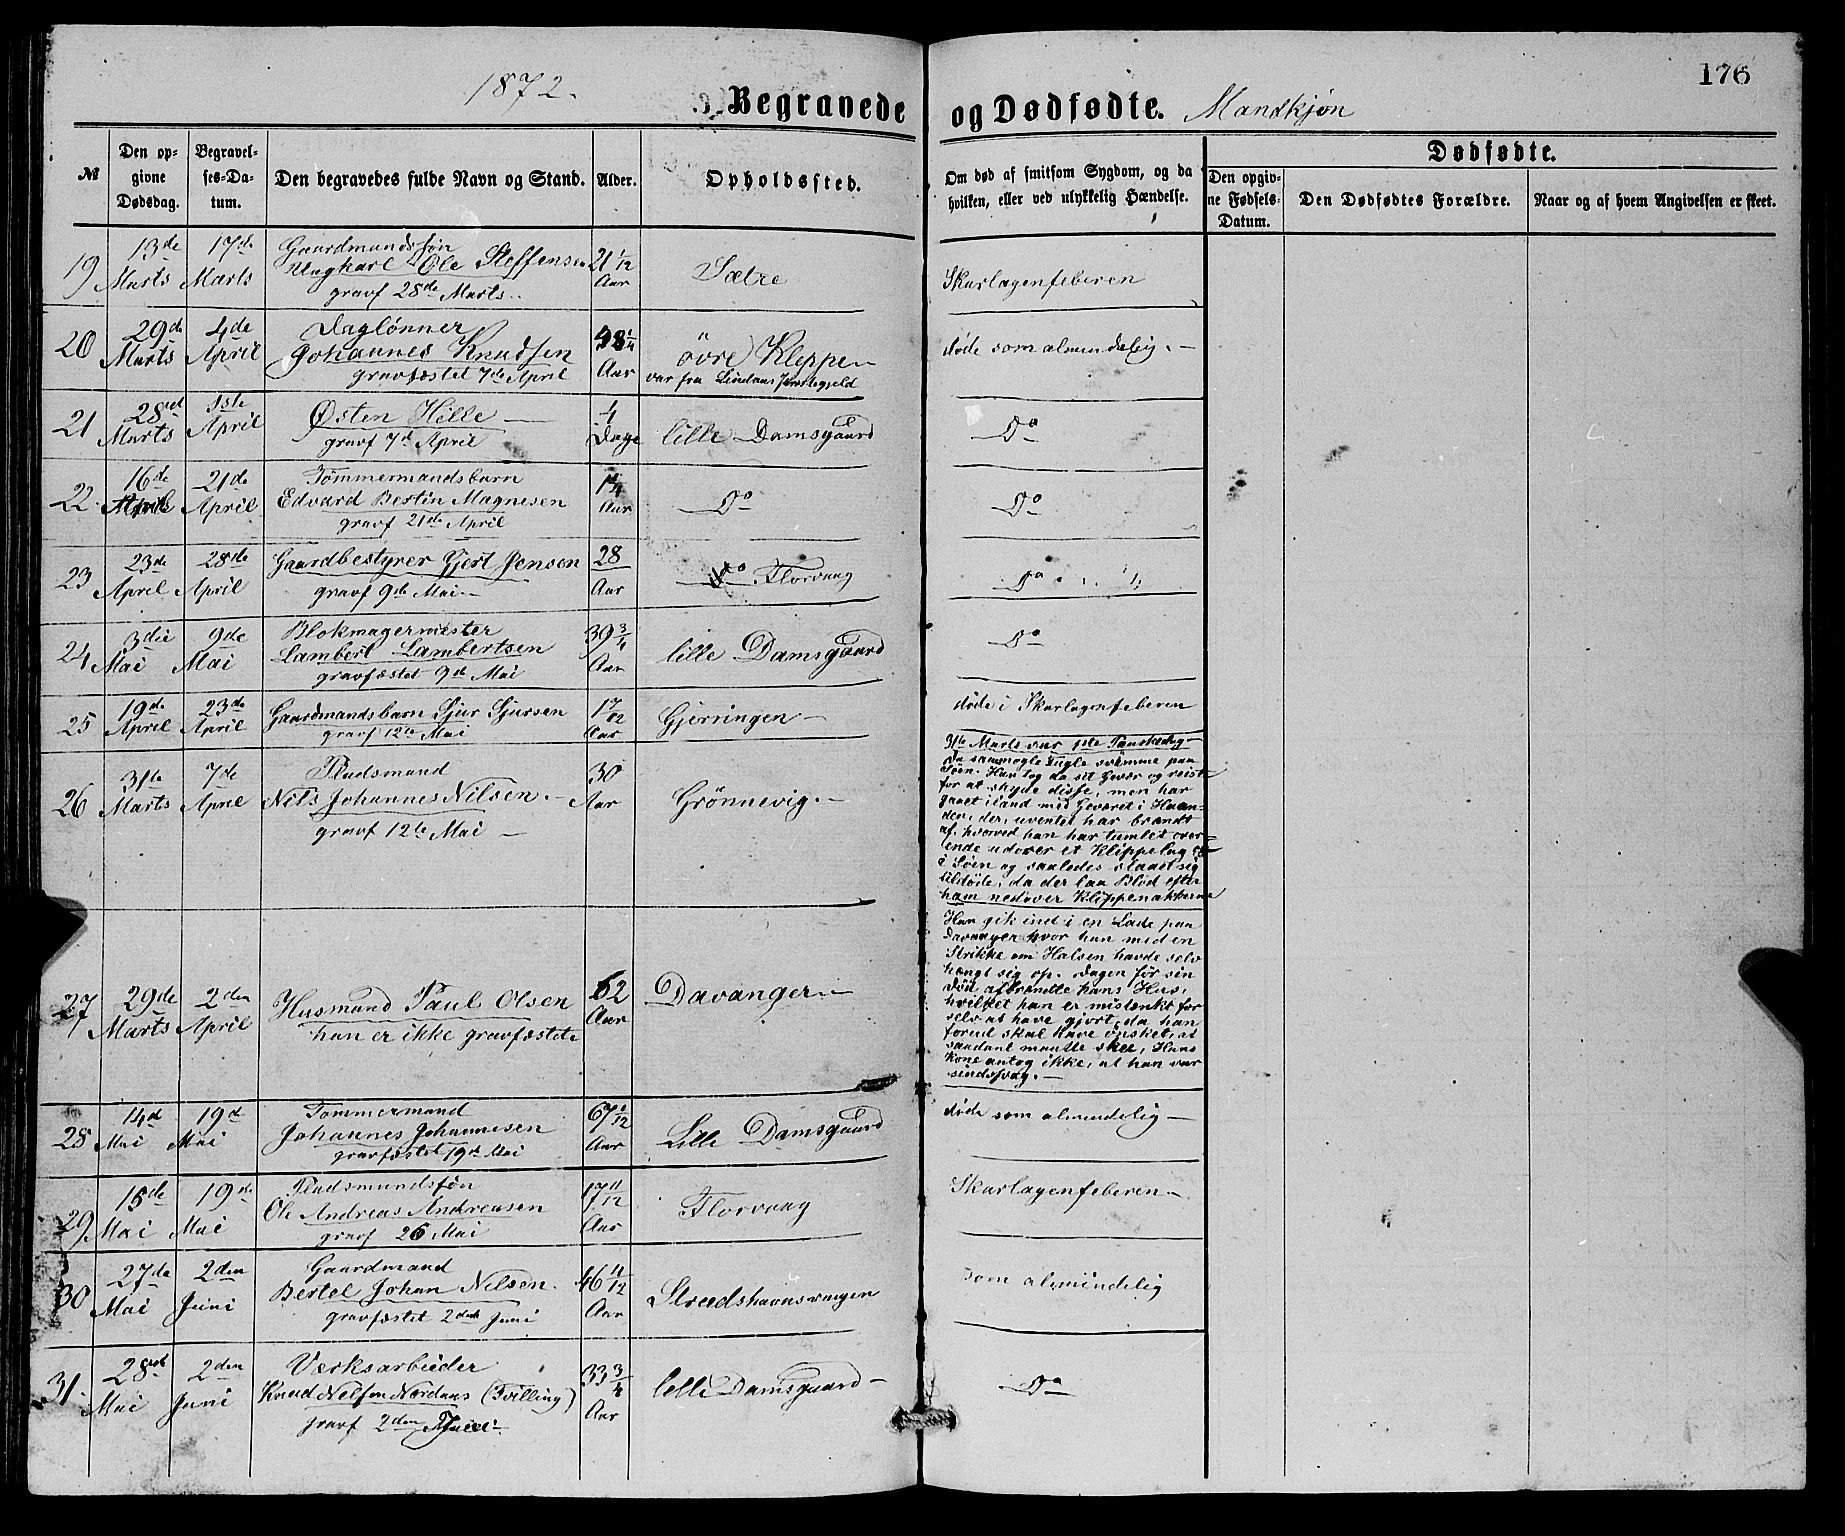 1872.
176
3) Begravede og Dødfødte. Mandkjøn
№
Den opgivne Dødsdag.
Begravelses-Datum.
Den begravedes fulde Navn og Stand.
Alder.
Opholdssted.
Om død af smitsom Sygdom, og da
hvilken, eller ved ulykkelig Hændelse.
Dødfødte.
Den opgivne Fødsels-Datum.
Den Dødfødtes Forældre.
Naar og af hvem Angivelsen er skeet.
19 13de Marts 17de Marts
Gaardmandssøn
Ungkarl Ole Steffensen
gravf 28de Marts.
21 1/12 Aar
Sætre
Skarlagenfeberen
20 29de Marts 4de April
Daglønner
Johannes Knudsen
gravfæstet 7de April
1/4 Aar
övre Kleppe
var fra Lindaas Præstegjeld
døde som almindelig.
21 28de Marts 1ste April
Østen Hille
gravf 7d April
4 Dage
lille Damsgaard
Do
22. 16de April 21de April
Tømmermandsbarn
Edvard Bertin Magnesen
gravf 21de April
1 1/4 Aar
Do
Do
23 23de April 28de April
Gaardbestyrer Gjert Jensen
gravf 9de Mai
28 Aar
do Florvaag
Do
24 3die Mai 9de Mai
Blokmagermester
Lambert Lambertsen
gravfæstet 9de Mai
39 3/4 Aar
lille Damsgaard
Do
25 19de April 23de April
Gaardmandsbarn Sjur Sjursen
gravf 12te Mai
1 7/12 Aar
Gjerringen
døde i Skarlagenfeberen
26 31te Marts 7de April
Pladsmand
Nils Johannes Nilsen.
gravf 12te Mai
30 Aar
Grönnevig.
31te Marts var 1ste Paaskedag
Da saa nogle Fugle svømme paa
Søen. Han tog da sit Gevær og reiste
for at skyde disse, men har
gaaet i land med Geværet i Haan-
den, der, uventet har brændt
af, hvorved han har tumlet over-
ende udover et Klippelag
i Søen og saaledes slaaet sig
tildøde, da der laa Blod efter
ham nedover Klippenakkerne
27 29de Marts 2den April
Husmand Paul Olsen
han er ikke gravfæstet
62 Aar
Davanger
Han gik ind i en Lade paa
Davanger hvor han med en
Strikke om Halsen havde selv
hængt sig op. Dagen før sin
Død afbrændte hans Hus,
hvilket han er mistænkt for
selv at have gjort, da han
forud skal have ønsket, at
saadant maatte skee, Hans
Kone antog ikke, at han var
sindssvag.
28 14d Mai 19d Mai
Tømmermand
Johannes Johannesen
gravfæstet 19de Mai
67 /12 Aar
Lille Damsgaard
døde som almindelig
29 15de Mai 19de Mai
Pladsmandssøn
Ole Andreas Andreasen
gravf 26 Mai
17 11/12 Aar
Florvaag
Skarlagenfeberen
30 27de Mai 2den Juni
Gaardmand
Bertel Johan Nilsen.
gravfæstet 2den Juni
46 11/12 Aar
Strudshavnsvaagen
som almindelig
31. 28de Mai 2den Juni
Værksarbeider
Knud Nilsen Nordaas (Tvilling)
gravf 2den Juni
33 3/4 Aar
lille Damsgaard
Do